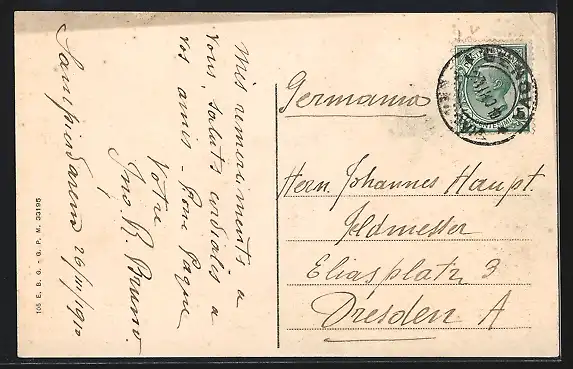 Sampierdarena 26/III/1910
Mes remerciments a
vous, saluts cordiales a
vos amis - Bone Paque
Votre
Ino. B. Bruno.
105 E. B. G. - G. P. M. 33195
Germania
Herrn Johannes Haupt.
Feldmesser
Eliasplatz 3
Dresden A